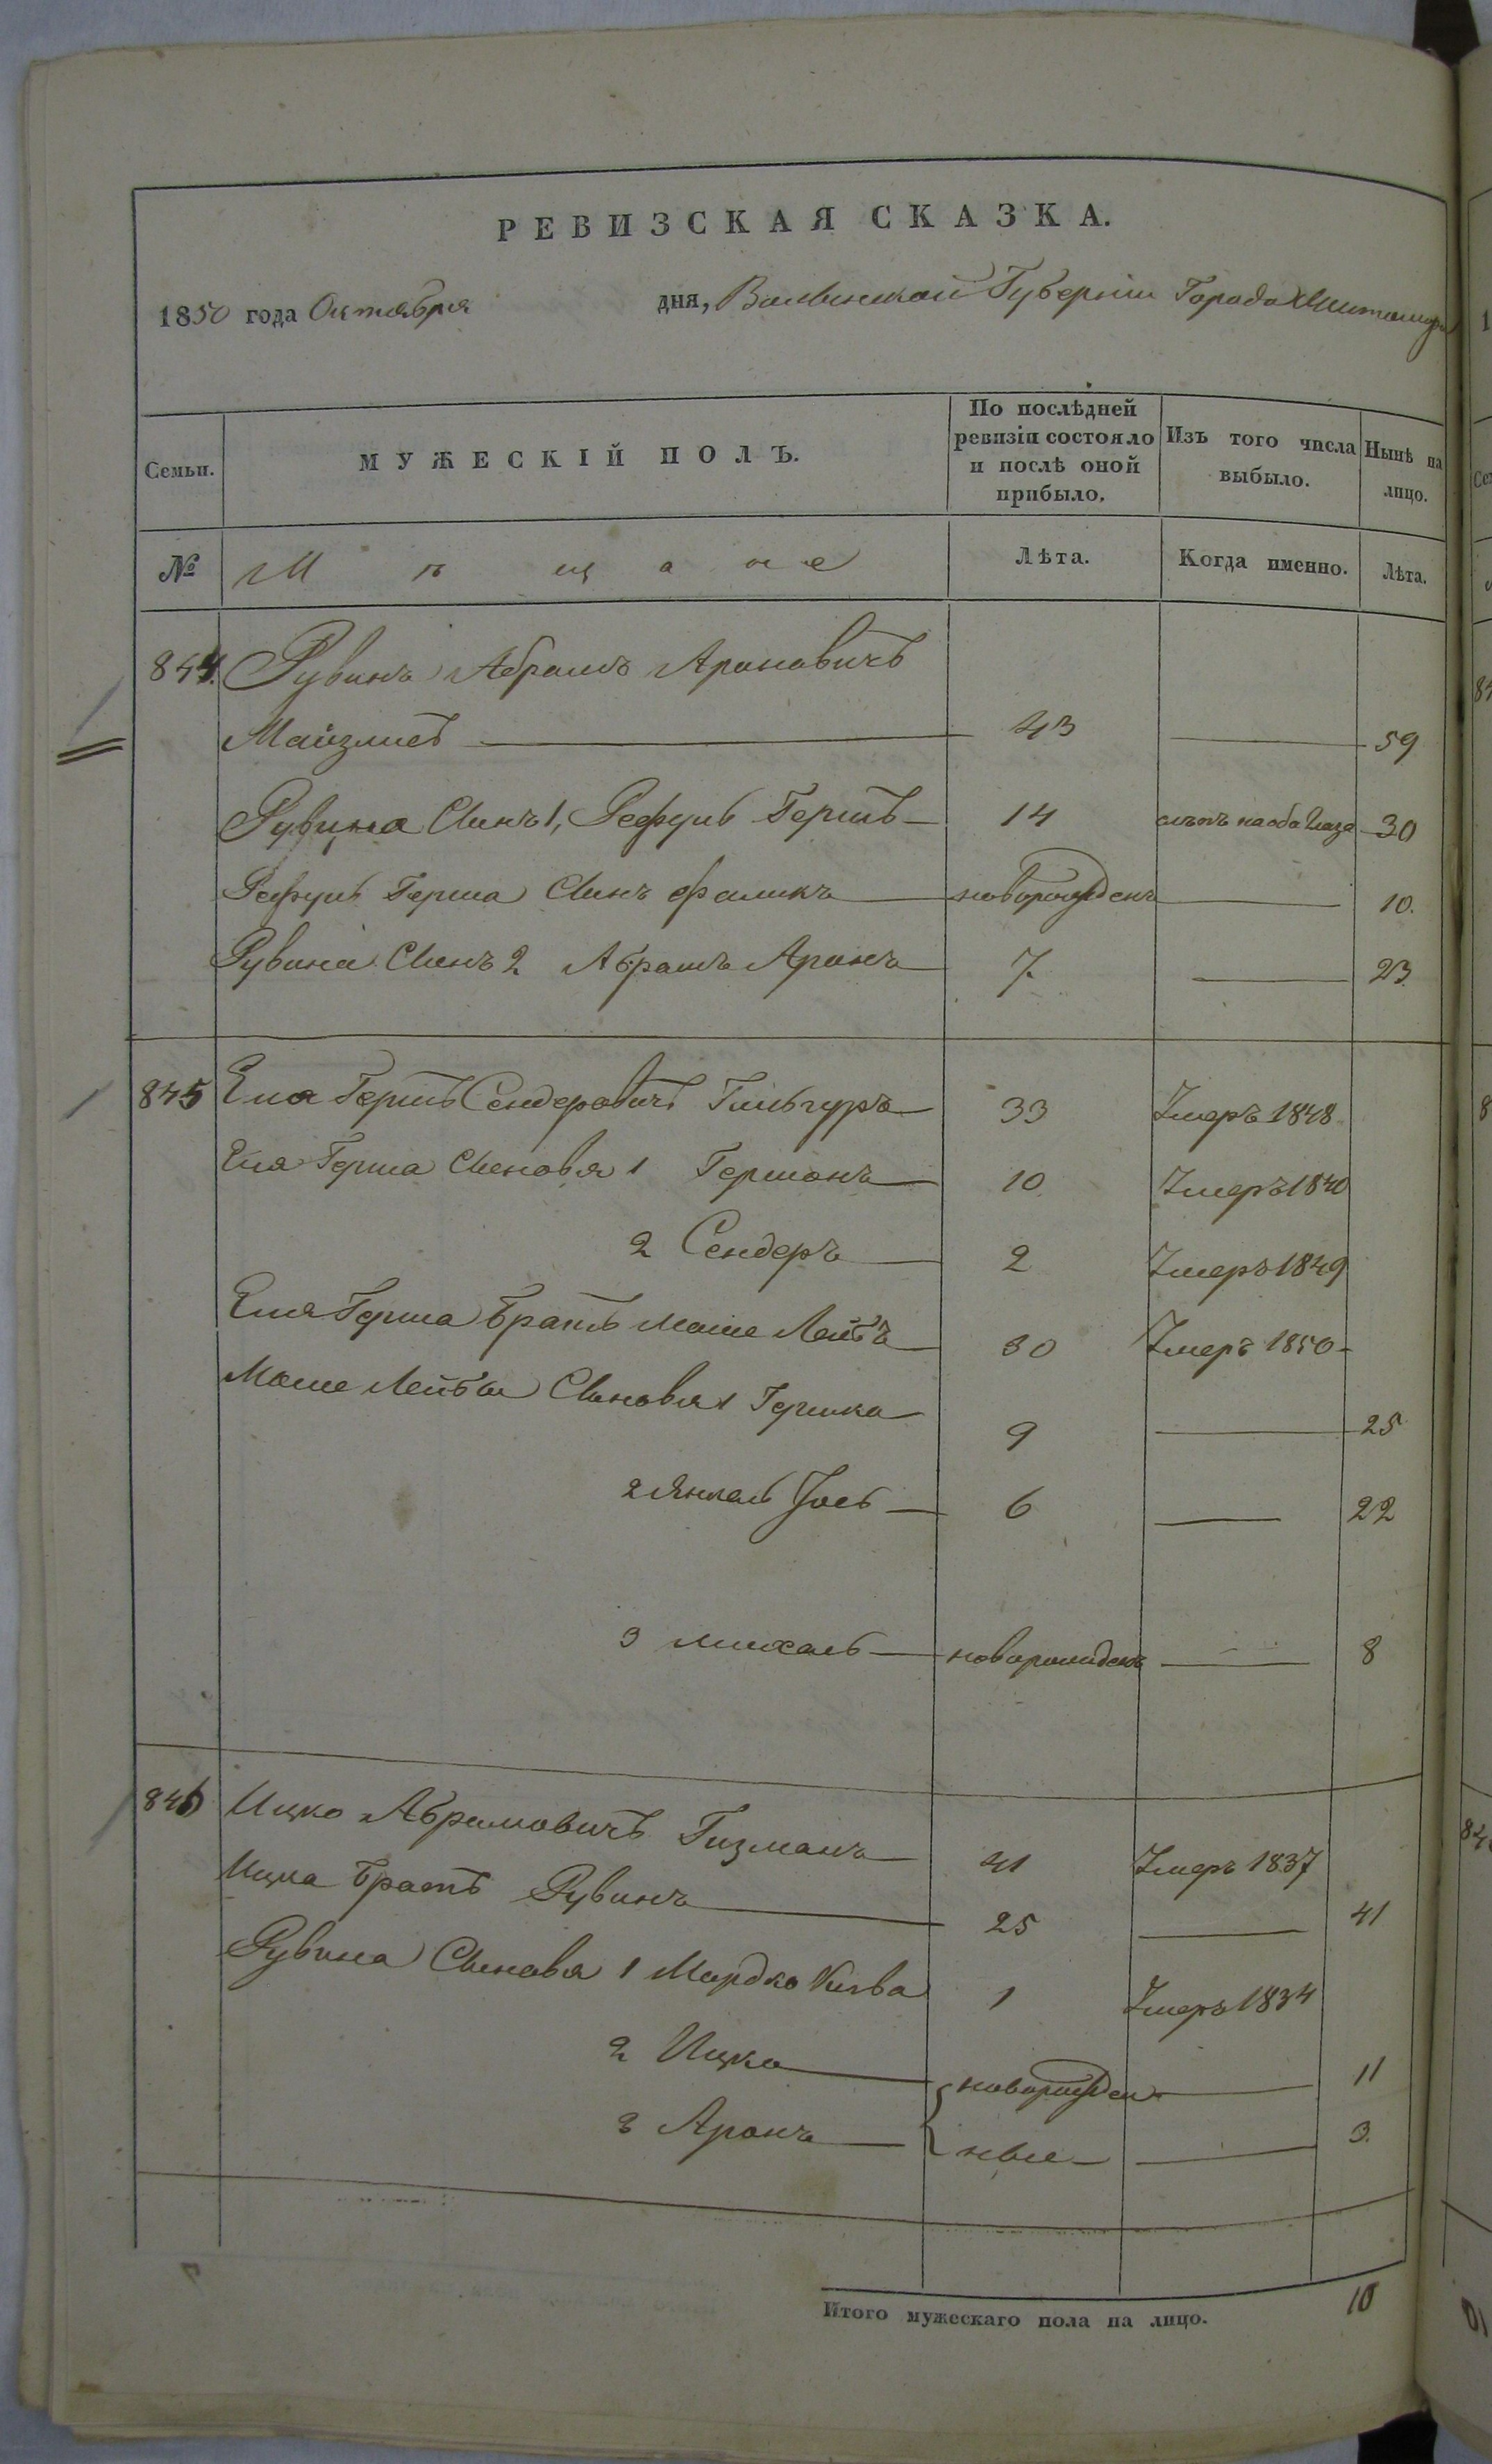 РЕВИЗСКАЯ СКАЗКА.
1850 года Октября дня, Волынской Губернии Города Житомира
Семьи. МУЖЕСКІЙ ПОЛЪ. По послѣдней ревизіи состояло и послѣ оной прибыло. Изъ того числа выбыло. Нынѣ на лицо.
№ Мѣщане Лѣта. Когда именно. Лѣта.
844. Рувинъ Абрамъ Ароновичъ
Майзлисъ 43 59
Рувина Сынъ 1, Рефуль Гершъ 14 слѣпъ на оба глаза 30
Рефуль Герша Сынъ Фаликъ новорожденъ 10.
Рувина Сынъ 2 Абрамъ Аронъ 7 23.
845 Еля Гершъ Сендеровичъ 33 Умеръ 1848
Еля Герша Сыновья 1 Гершонъ 10 Умеръ 1840
2 Сендеръ 2 Умеръ 1849
Еля Герша братъ Моше Лейбъ 30 Умеръ 1850
Моше Лейбы Сыновья 1 Гершко 9 25
2 Янкель Іось 6 22
3 Михель новорожденъ 8
846 Ицко Абрамовичъ Гизманъ 41 Умеръ 1837
Ицка братъ Рувинъ 25 41
Рувина Сыновья 1 Мордко Кива 1 Умеръ 1834
2 Ицко новорожден 11
3 Аронъ ные 3.
Итого мужескаго пола на лицо. 10